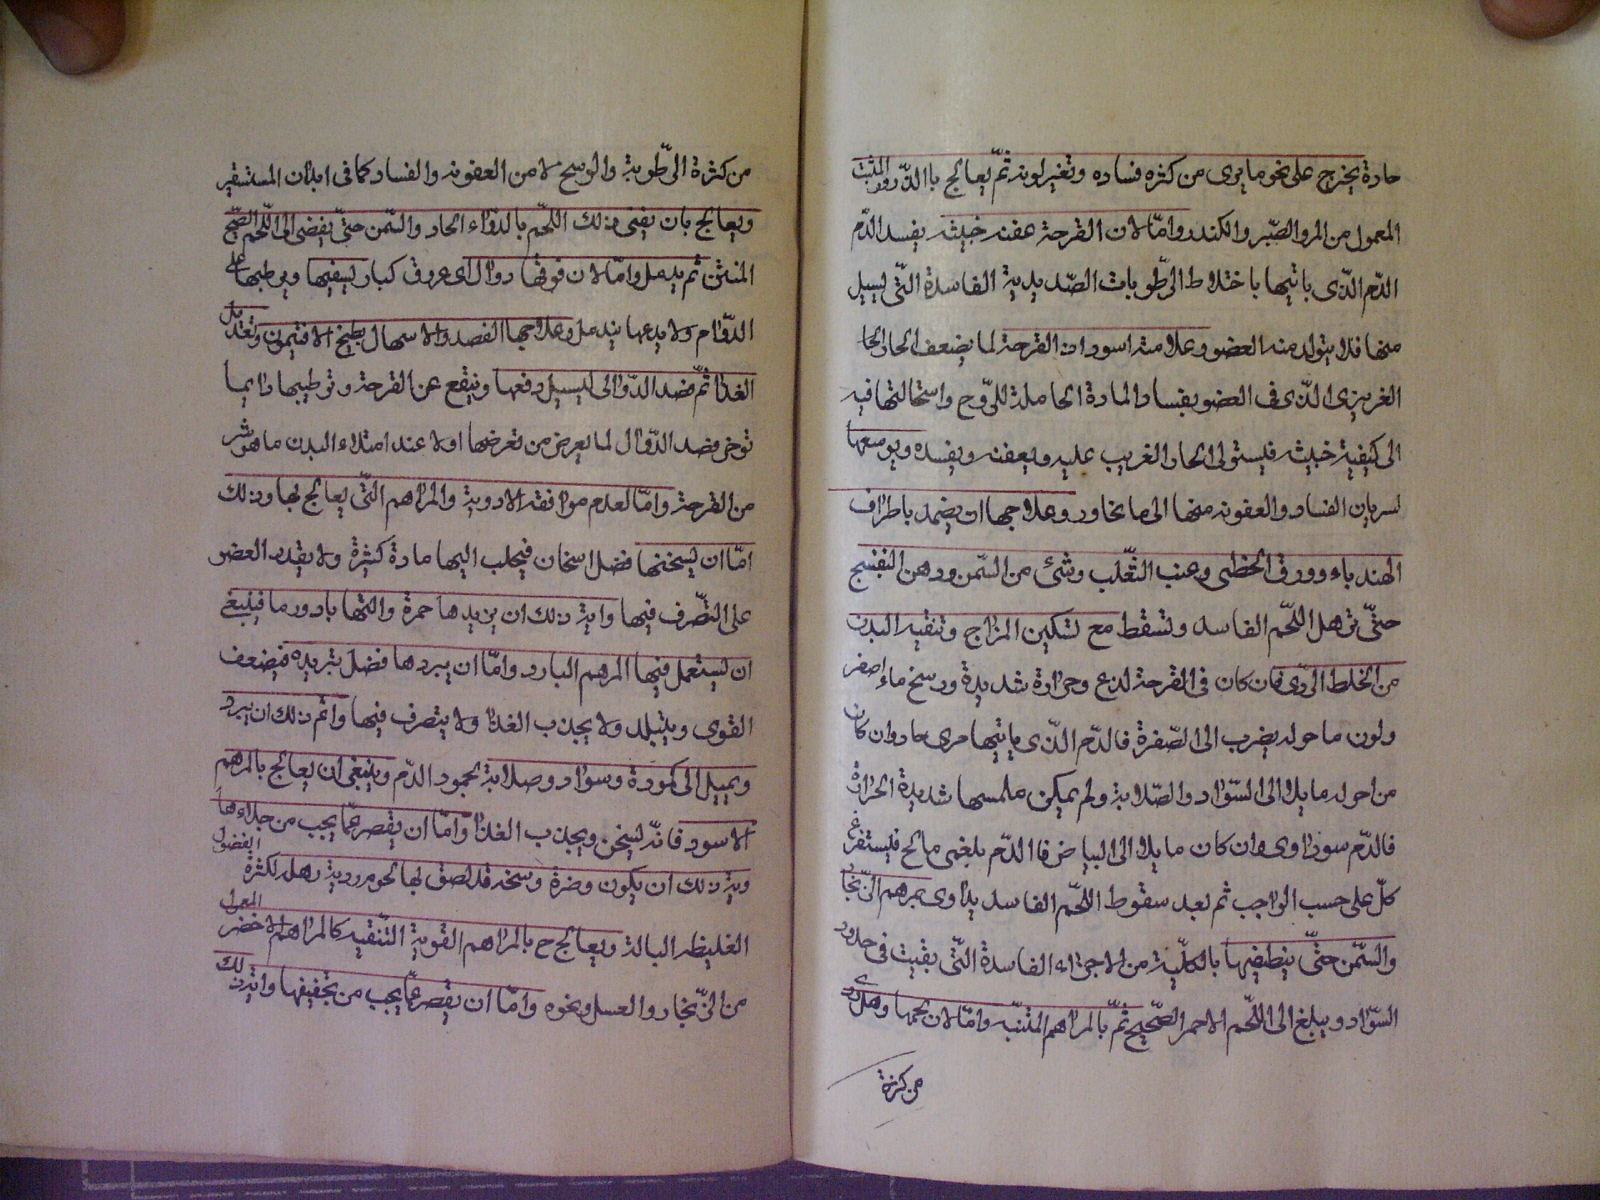 حادة يخرج على نحو ما يرى من كثره فساده وتغير لونه ثمّ يعالج باالذّرور المنبت
المعمول من المر والصّبر والكندر وامّا لان القرحة عفنه خبيثه يفسد الدّم
الدّم الذّى ياتيها باختلاط الرّطوبات الصّديدية الفاسدة التّى يسيل
منها فلا يتولد منه العضو وعلامته اسوداد القرحة لما يضعف الحار الحا
الغريزى الذّى فى العضو بفساد المادة الحاملة للرّوح واستحالتها فيه
الى كيفية خبيثه فيستولى الحار الغريب عليه ويعفنه ويفسده ويوسعها
لسريان الفساد والعفونه منها الى ما يجاور وعلاجها ان يضمد باطراف
الهندباء وورق الخطمى وعنب الثّعلب وشئ من السّمن ودهن البنفسج
حتّى ترهل اللّحم الفاسد وتسقط مع تسكين المزاج وتنقيه البدن
من الخلط الرّدى فان كان فى القرحة لذع وحرارة شديدة ورسخ ماء اصفر
ولون ما حوله يضرب الى الصّفرة فالدّم الذّى ياتيها مرى حاد وان كان
من احوله مايلا الى السّواد والصّلابة ولم يكن ملمسها شديدة الحرارة
فالدّم سوداوى وان كان مايلا الى البياض فاالدّم بلغمى مالح فليستفرغ
كلّ على حسب الواجب ثم بعد سقوط اللّحم الفاسد يداوى بمرهم الزّنجار
والسّمن حتّى ينطفيها بالكلّية من الاجزاء الفاسدة التّى بقيت فى حدود
السّواد ويبلغ الى اللّحم الاحمر الصّحيح ثمّ بالمراهم المنبته وامّا لان لحمها رهل ردى
من كثرة
من كثرة الرّطوبة والوسخ لا من العفونه والفساد كما فى ابدان المستسقين
ويعالج بان يفنى ذلك اللّحم بالدّواء الحاد والسّمن حتىّ يفضى الى اللّحم الصّحيح
ثم يدمل وامّا لان فوقها دوالى عروق كبار يسقيها ويرطبها على
الدّوام ولا يدعها يندمل وعلاجها الفصد والاسهال بطبيخ الافتيمون وتعديل
الغذا ثمّ فصد الدّوالى ليسيل دفعها وينقع عن القرحة وترطيبها دايما
توخى فصد الدّوال لما يعرض من تعرضها اولا عند امتلاء البدن ما هو شر
من القرحة وامّا لعدم موافقه الادوية والمراهم التّى يعالج بها وذلك
امّا ان يسخنها فضل اسخان فيجلب اليها مادة كثيرة ولا يقدر العضو
على التصّرف فيها واية ذلك ان يزيدها حمرة والتهابا دور ما فينبغى
ان يستعمل فيها المرهم البارد وامّا ان يبردها فضل تبريده فيضعف
القوى ويتبلد ولا يجذب الغذا ولا يتصرف فيها واثم ذلك ان يبرد
ويميل الى كمودة وسواد وصلابة بجمود الدّم وينبغى ان يعالج بالمرهم
الاسود فانّه يسخن ويجذب الغذا وامّا ان يقصر عمّا يجب من جلاءها
وية ذلك ان يكون وضرة وسخه قد لصق بها لحوم ردية رهله لكثرة الفضول
الغليظه البالة ويعالج ح بالمراهم القوية التّنقيه كالمراهم الاخضر المعمول
من الزّنجار والعسل ونحوه وامّا ان يقصر عمّا يجب من تجفيفها واية ذلك